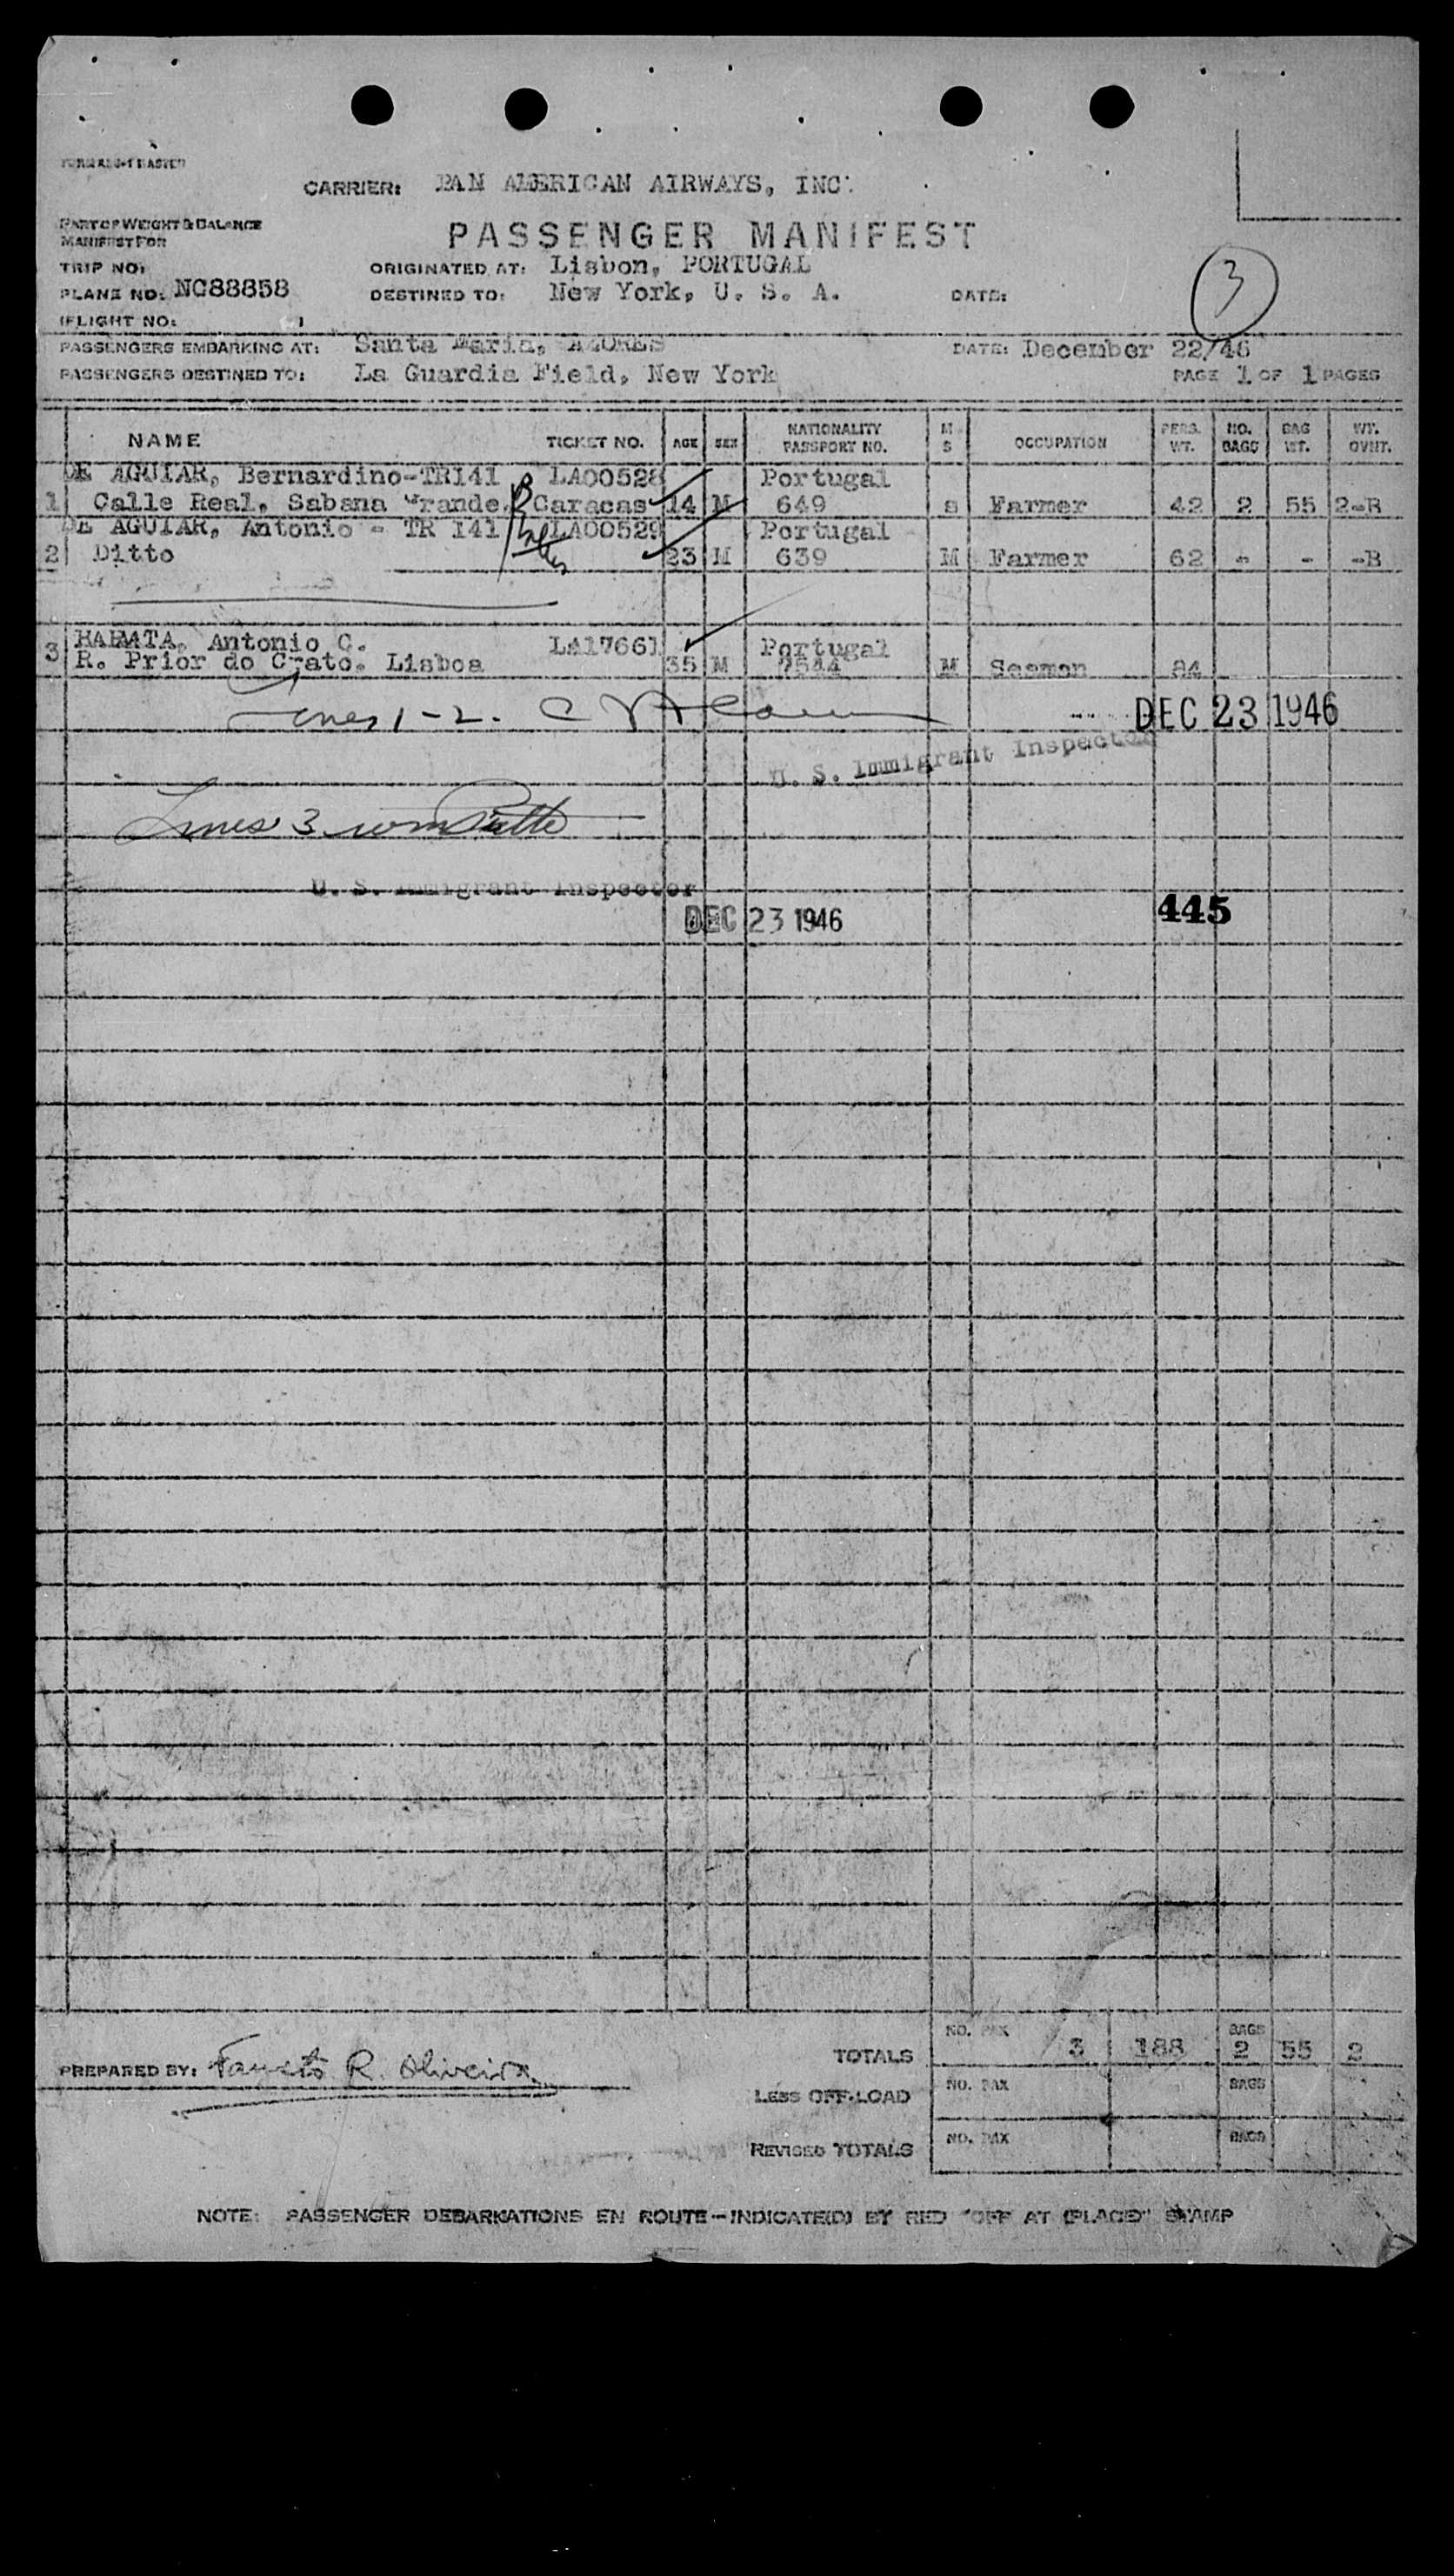 CARRIER: PAN AMERICAN AIRWAYS, INC.
PART OF WEIGHT & BALANCE
MANIFEST FOR
PASSENGER MANIFEST
TRIP NO:
ORIGINATED AT: Lisbon, PORTUGAL
PLANE NO: NC88858
DESTINED TO: New York, U. S. A.
DATE:
3
FLIGHT NO:
PASSENGERS EMBARKING AT: Santa Maria, AZORES
DATE: December 22/46
PASSENGERS DESTINED TO: La Guardia Field, New York
PAGE 1 OF 1 PAGES
NAME TICKET NO. AGE SEX NATIONALITY PASSPORT NO. M S OCCUPATION PERS. WT. NO. BAGS BAG WT. WT. OVHT.
DE AGUIAR, Bernardino-TR141 LA00528 Portugal
1 Calle Real, Sabana Grande, Caracas 14 M 649 s Farmer 42 2 55 2-B
DE AGUIAR, Antonio - TR 141 LA00529 Portugal
2 Ditto 23 M 639 M Farmer 62 - - -B
3 Antonio C. LA17661 Portugal
R. Prior do Crato, Lisboa 35 M 7544 M Seaman 84
Lines 1-2.
DEC 23 1946
U. S. Immigrant Inspector
Lines 3
U. S. Immigrant Inspector
DEC 23 1946
445
TOTALS NO. PAX 3 188 BAGS 2 55 2
PREPARED BY: Fausto R. Oliveira
LESS OFF-LOAD NO. PAX BAGS
REVISED TOTALS NO. PAX BAGS
NOTE: PASSENGER DEBARKATIONS EN ROUTE—INDICATE(D) BY RED "OFF AT (PLACE)" STAMP